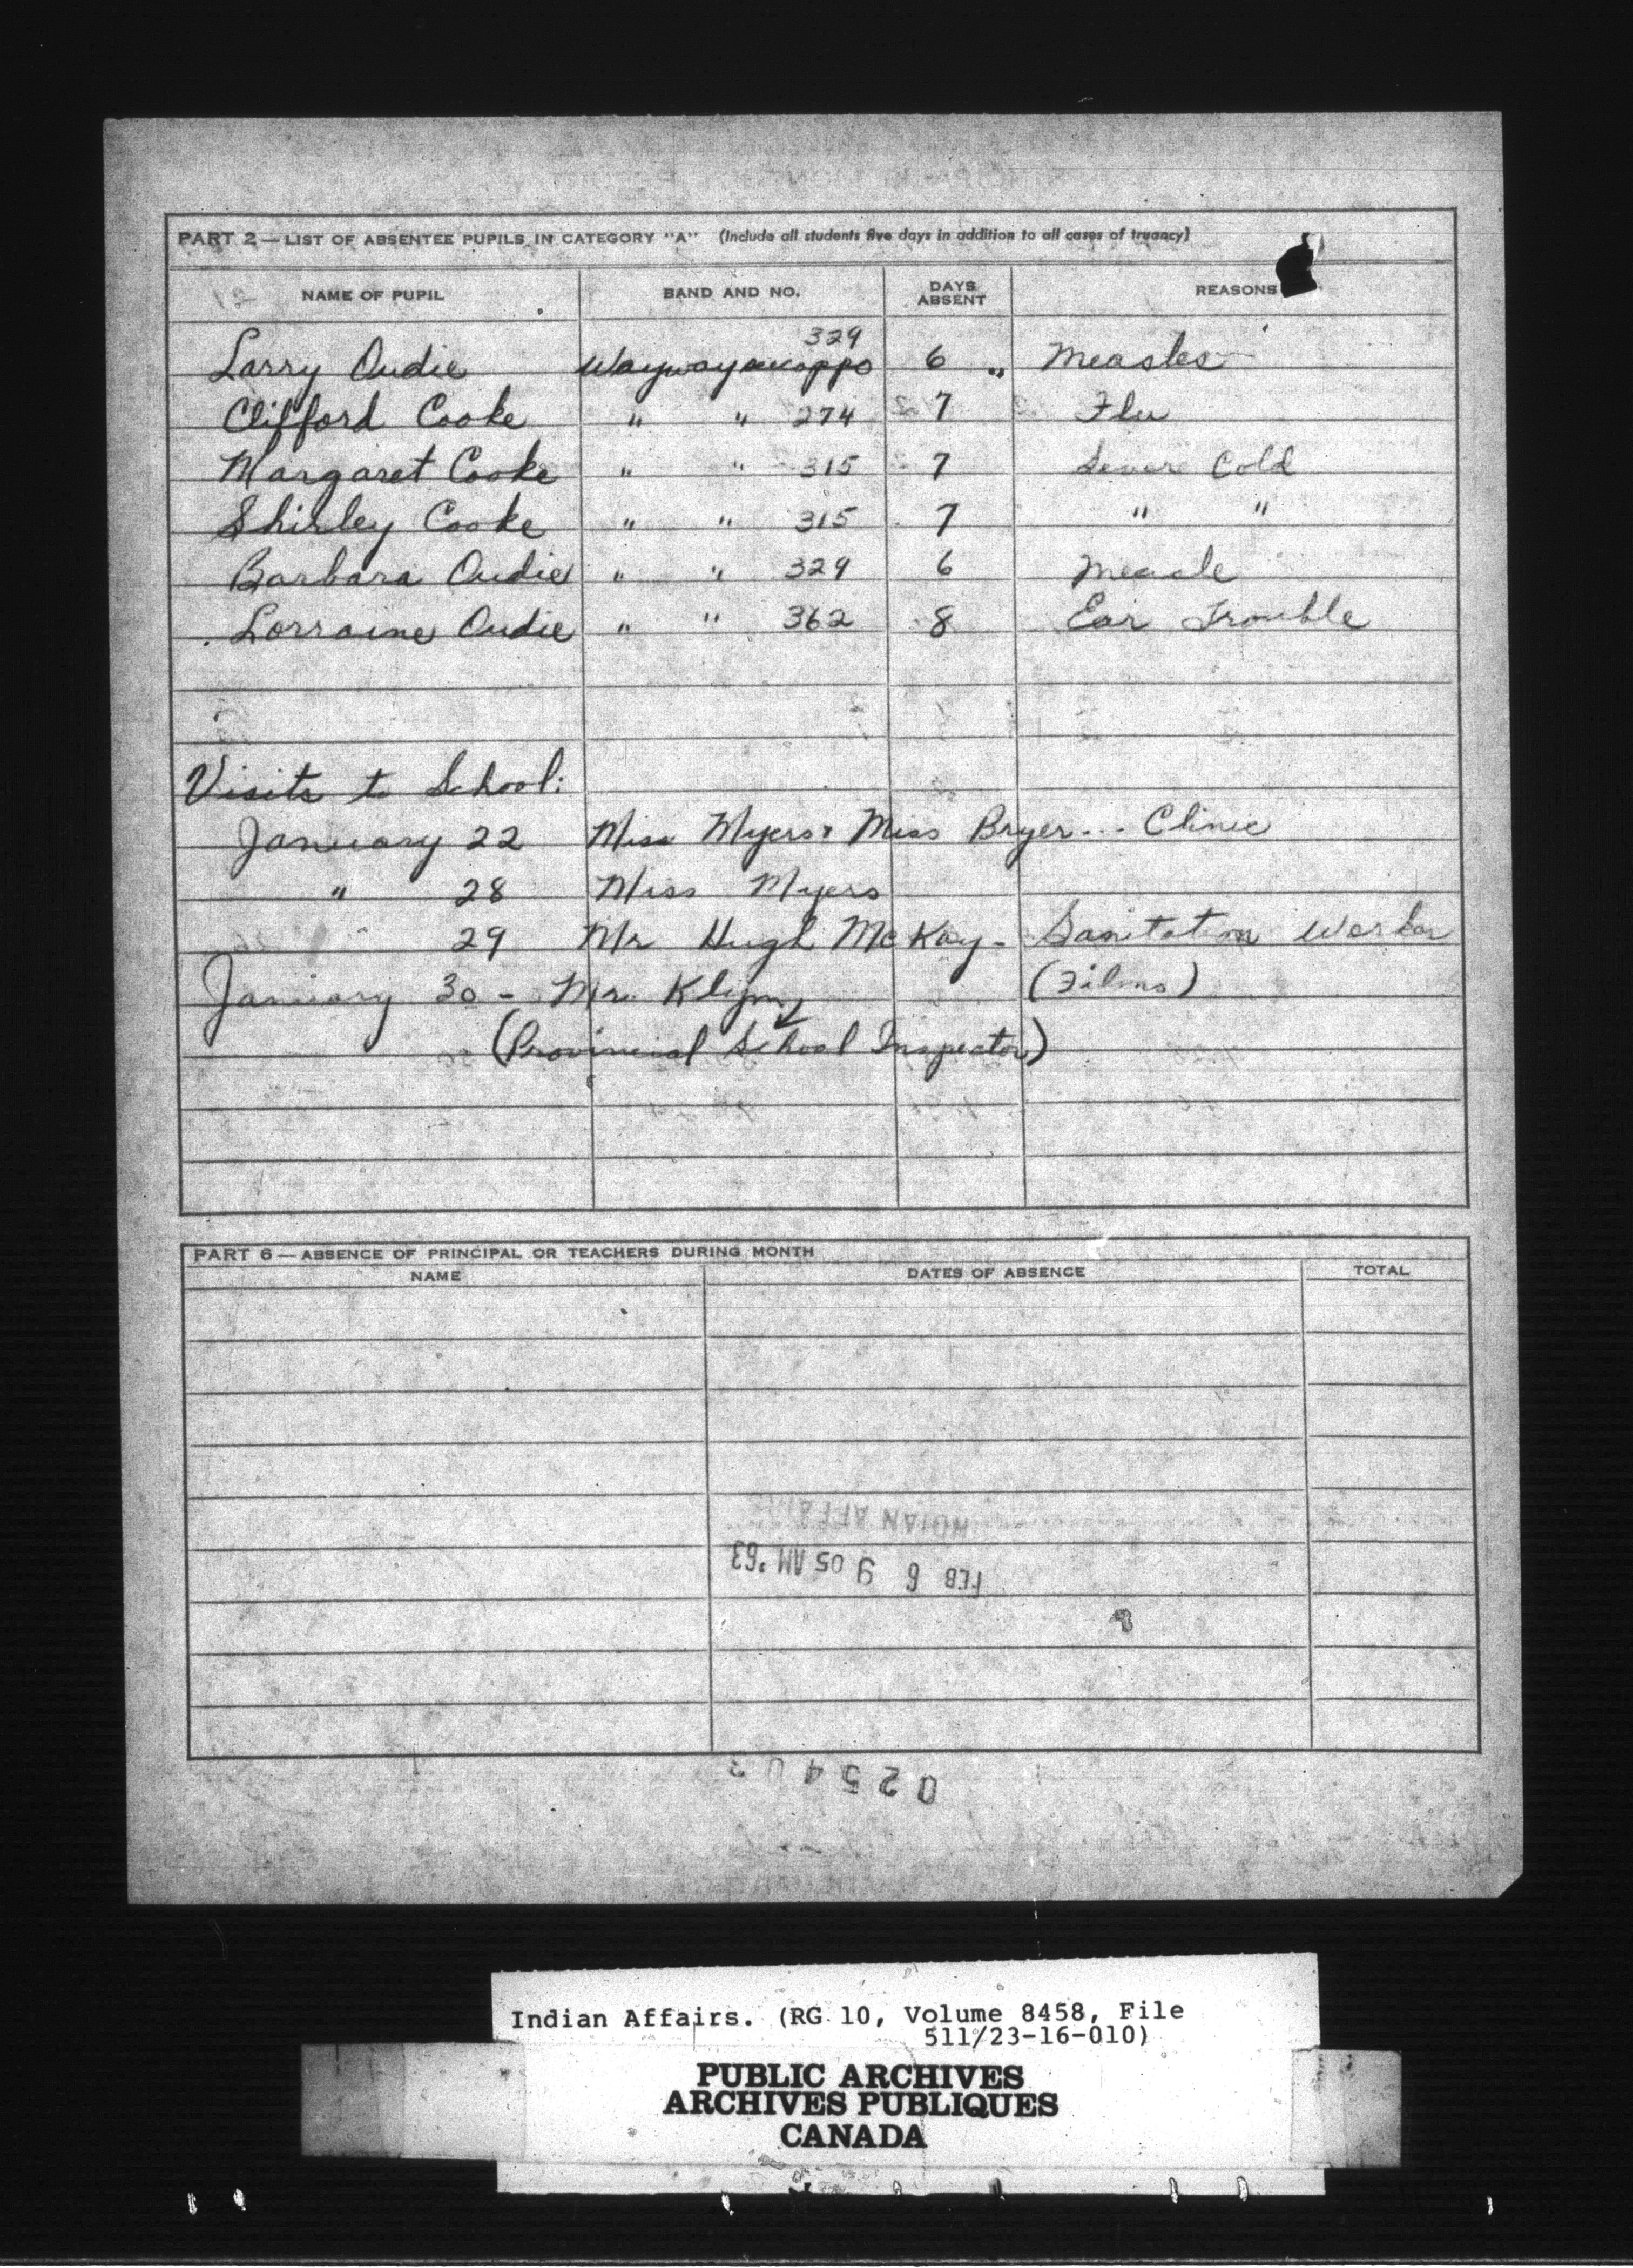 PART 2 — LIST OF ABSENTEE PUPILS IN CATEGORY "A" (Include all students five days in addition to all cases of truancy)
NAME OF PUPIL BAND AND NO. DAYS ABSENT REASONS
329
Larry Audie Waywayseecappo 6 " Measles
Clifford Cooke " " 274 7 Flu
Margaret Cooke " " 315 7 Severe Cold
Shirley Cooke " " 315 7 " "
Barbara Audie " " 329 6 Measle
Lorraine Audie " " 362 8 Ear Trouble
Visits to School:
January 22 Miss Myers & Miss Bryer... Clinic
" 28 Miss Myers
" 29 Mr Hugh McKay - Sanitation Worker
January 30 - Mr. Klym (Films)
(Provincial School Inspector)
PART 6 — ABSENCE OF PRINCIPAL OR TEACHERS DURING MONTH
NAME DATES OF ABSENCE TOTAL
INDIAN AFFAIRS
FEB 6 9 05 AM '63
Indian Affairs. (RG 10, Volume 8458, File
511/23-16-010)
PUBLIC ARCHIVES
ARCHIVES PUBLIQUES
CANADA